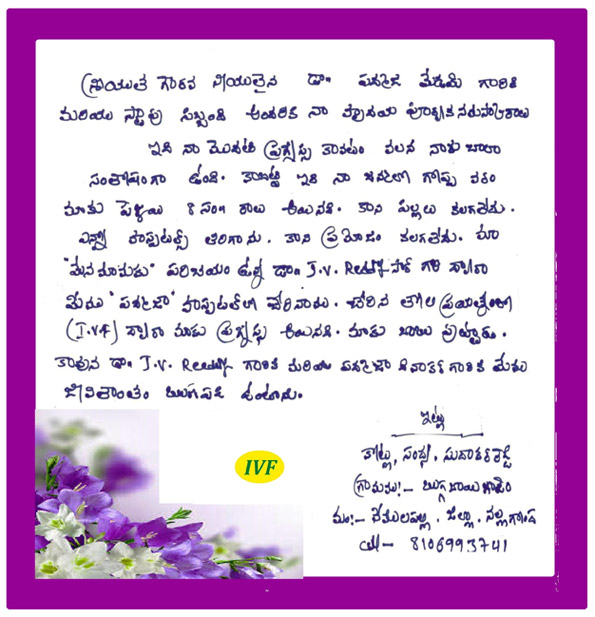 శ్రీయుత గౌరవ నీయులైన డా॥ పద్మజ మేడమ్ గారికి
మరియు స్టాఫు సిబ్బంది అందరికి నా హృదయ పూర్వక నమస్కారాలు
ఇది నా మొదటి ప్రగ్నెన్సి కావటం వలన నాకు చాలా
సంతోషంగా ఉంది. కాబట్టి ఇది నా జీవితంలో గొప్ప వరం
మాకు పెళ్ళయి 8 సం॥ రాలు అయినది. కాని పిల్లలు కలగలేదు.
ఎన్నో హాస్పటల్స్ తిరిగాను. కాని ప్రయోజం కలగలేదు. మా
"మేనమామకు" పరిచయం ఉన్న డా॥ J.V. Reddy సార్ గారి ద్వారా
మేము "పద్మజా" హాస్పటల్‌లో చేరినాము. చేరిన తొలి ప్రయత్నంలో
(I.V.F) ద్వారా మాకు ప్రగ్నెన్సి అయినది. మాకు బాబు పుట్టాడు.
కావున డా॥ J.V. Reddy గారికి మరియు పద్మజా దివాకర్ గారికి మేము
జీవితాంతం ఋణపడి ఉంటాము.
ఇట్లు
సంధ్య, సుధాకర్‌రెడ్డి
గ్రామము:-
మం:- వేములపల్లి, జిల్లా, నల్లగొండ
cell- 8106993741
IVF